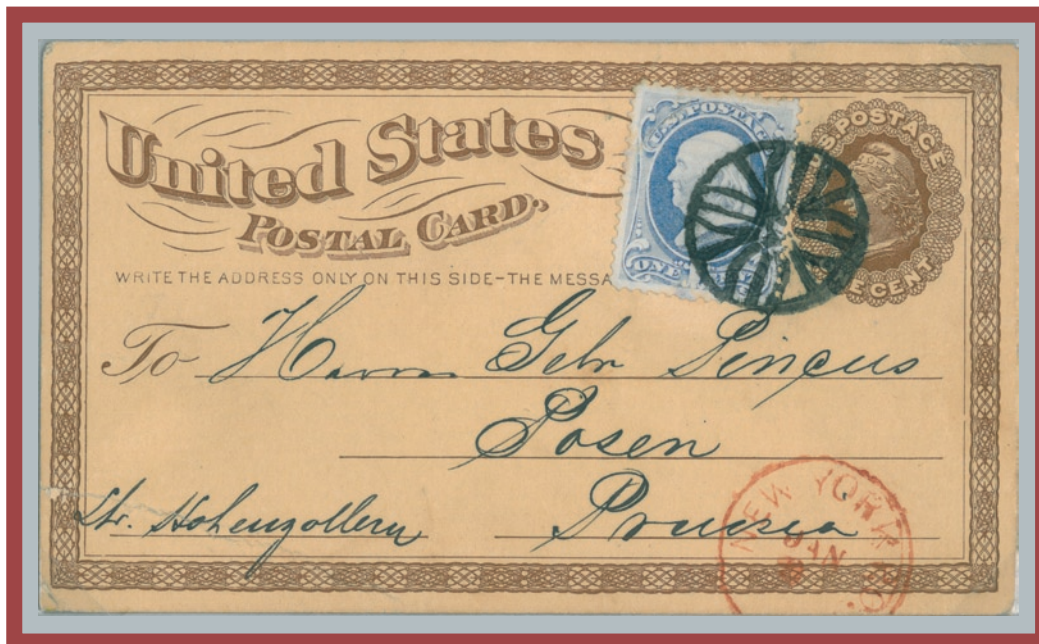 United States
POSTAL CARD.
U.S. POSTAGE
S. POSTAGE
WRITE THE ADDRESS ONLY ON THIS SIDE–THE MESSA
ONE
E CENT
To Herrn Gebr Pincus
Posen
Str. Hohenzollern Prussia
NEW YORK
JAN